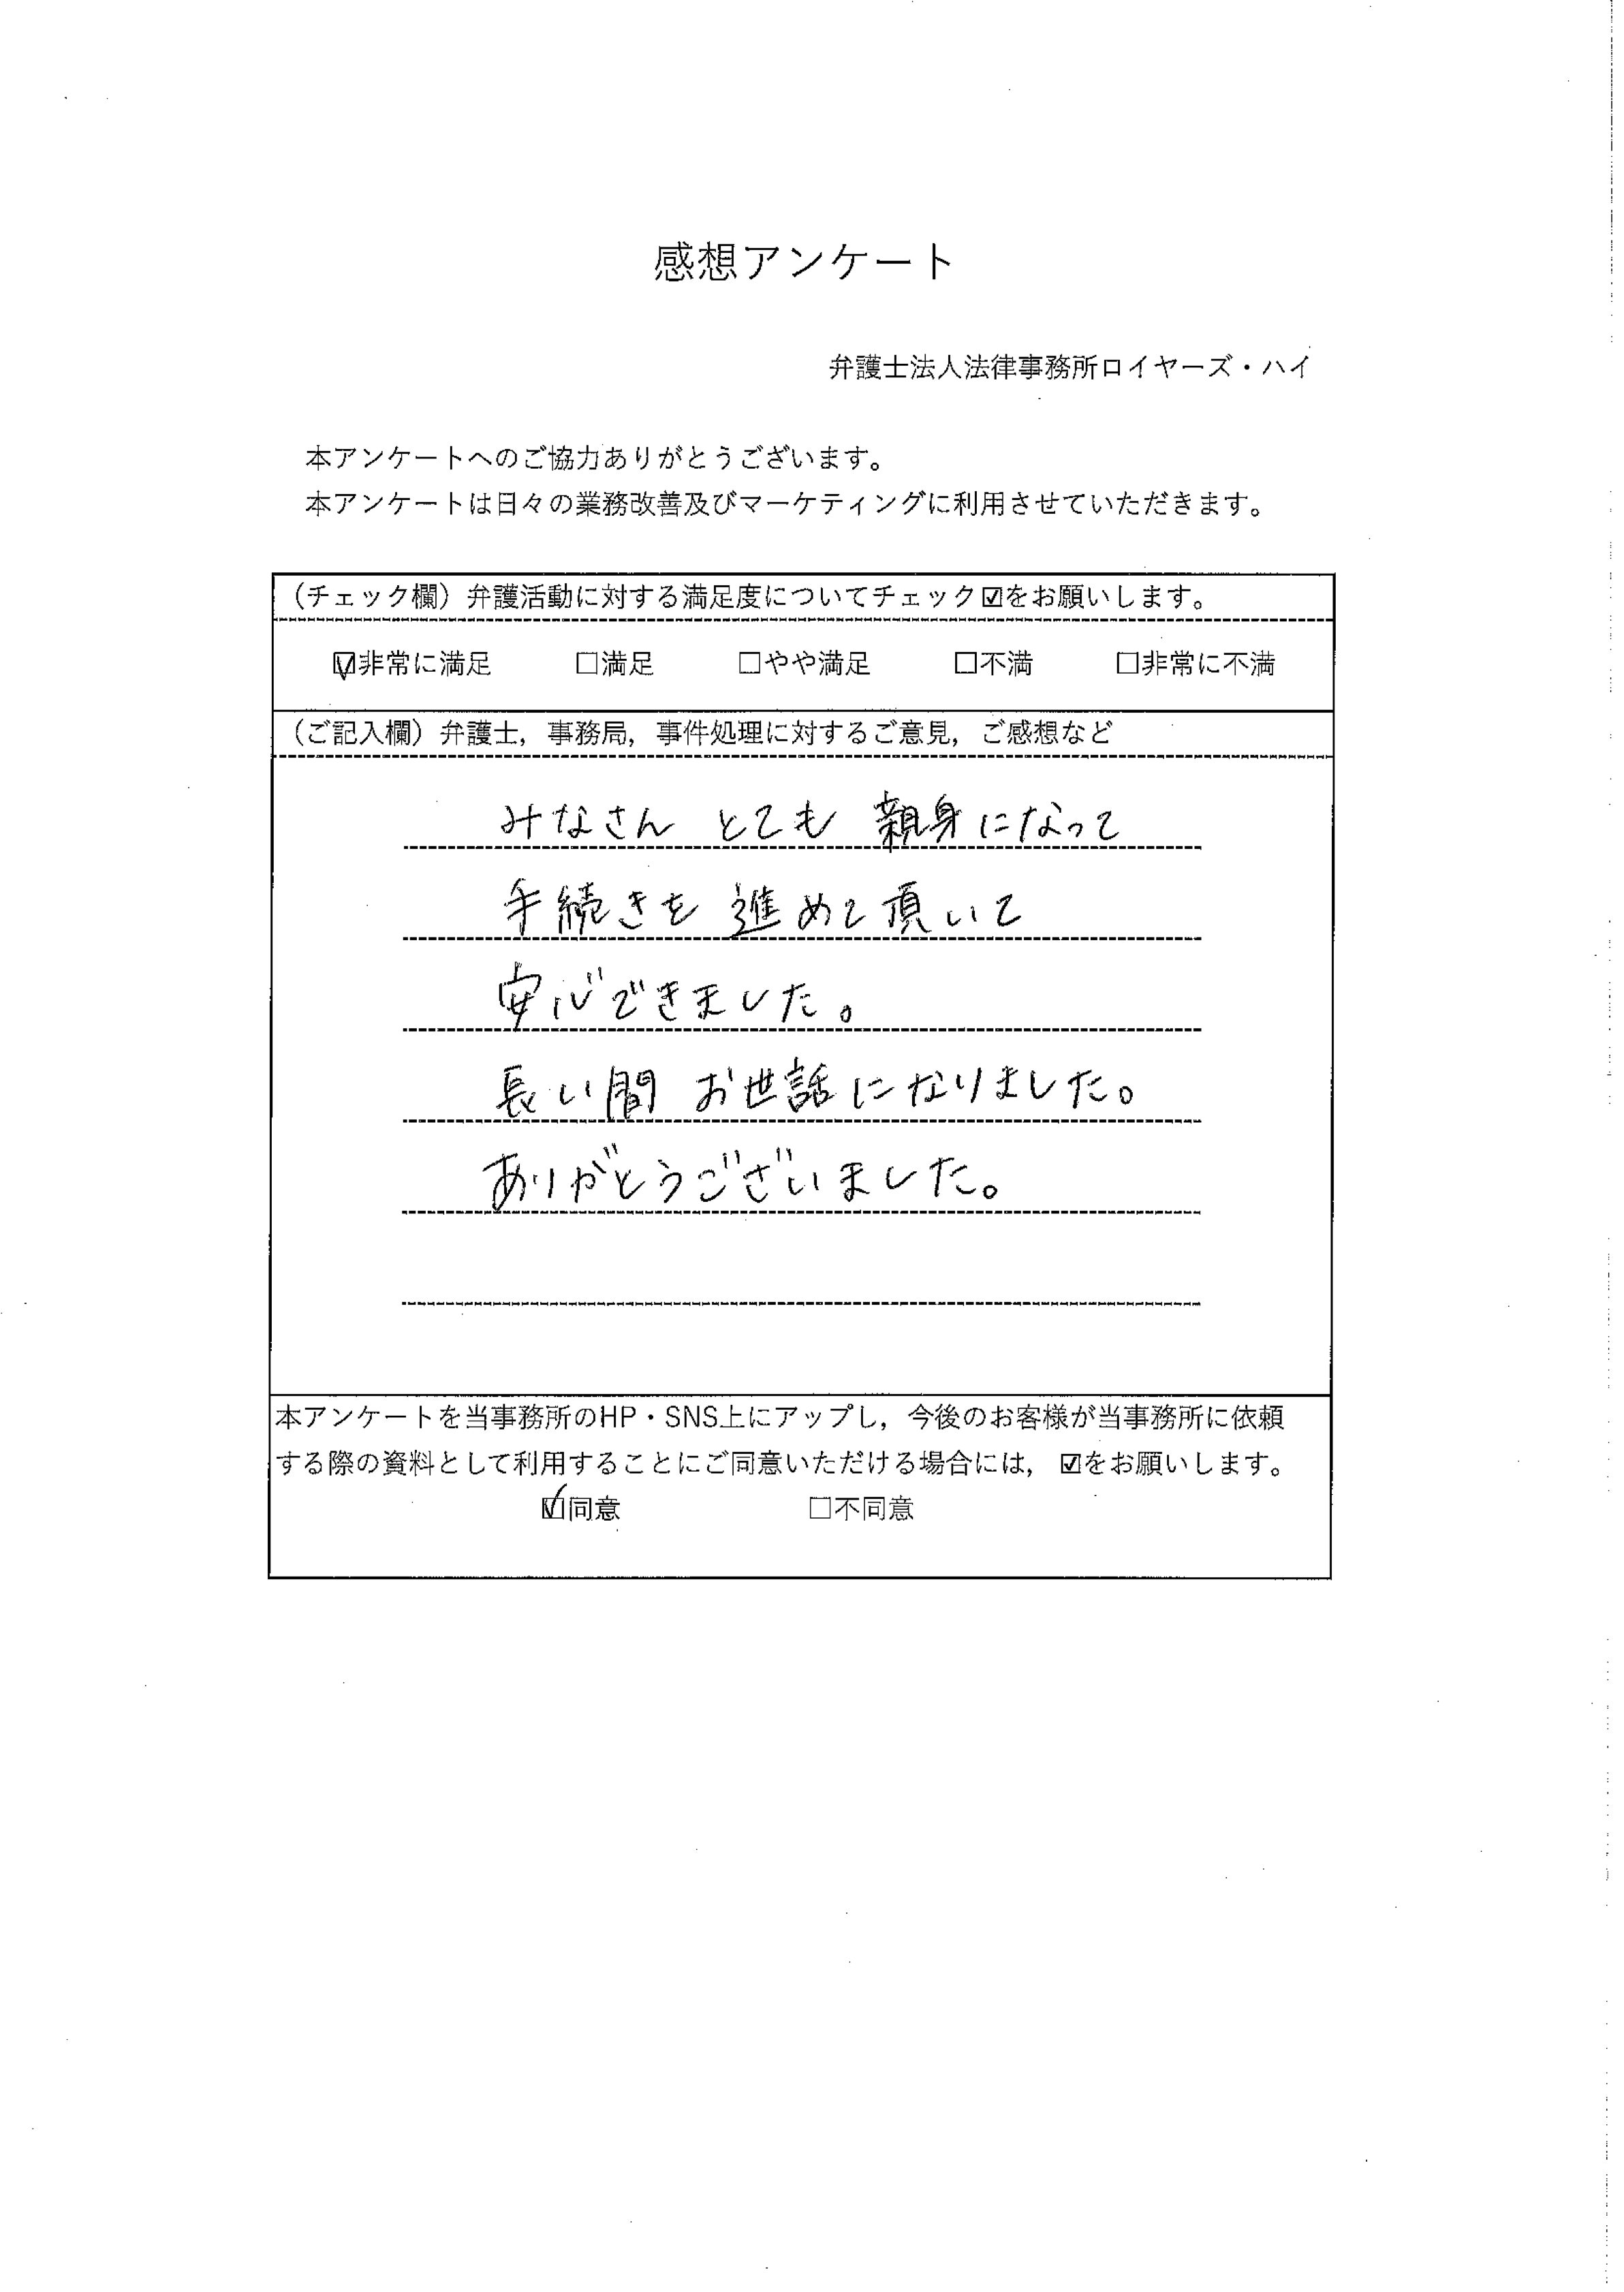 感想アンケート
弁護士法人法律事務所ロイヤーズ・ハイ
本アンケートへのご協力ありがとうございます。
本アンケートは日々の業務改善及びマーケティングに利用させていただきます。
（チェック欄）弁護活動に対する満足度についてチェック☑をお願いします。
☑非常に満足 □満足 □やや満足 □不満 □非常に不満
（ご記入欄）弁護士，事務局，事件処理に対するご意見，ご感想など
みなさん とても 親身になって
手続きを 進めて頂いて
安心できました。
長い間 お世話になりました。
ありがとうございました。
本アンケートを当事務所のHP・SNS上にアップし，今後のお客様が当事務所に依頼
する際の資料として利用することにご同意いただける場合には，☑をお願いします。
☑同意 □不同意